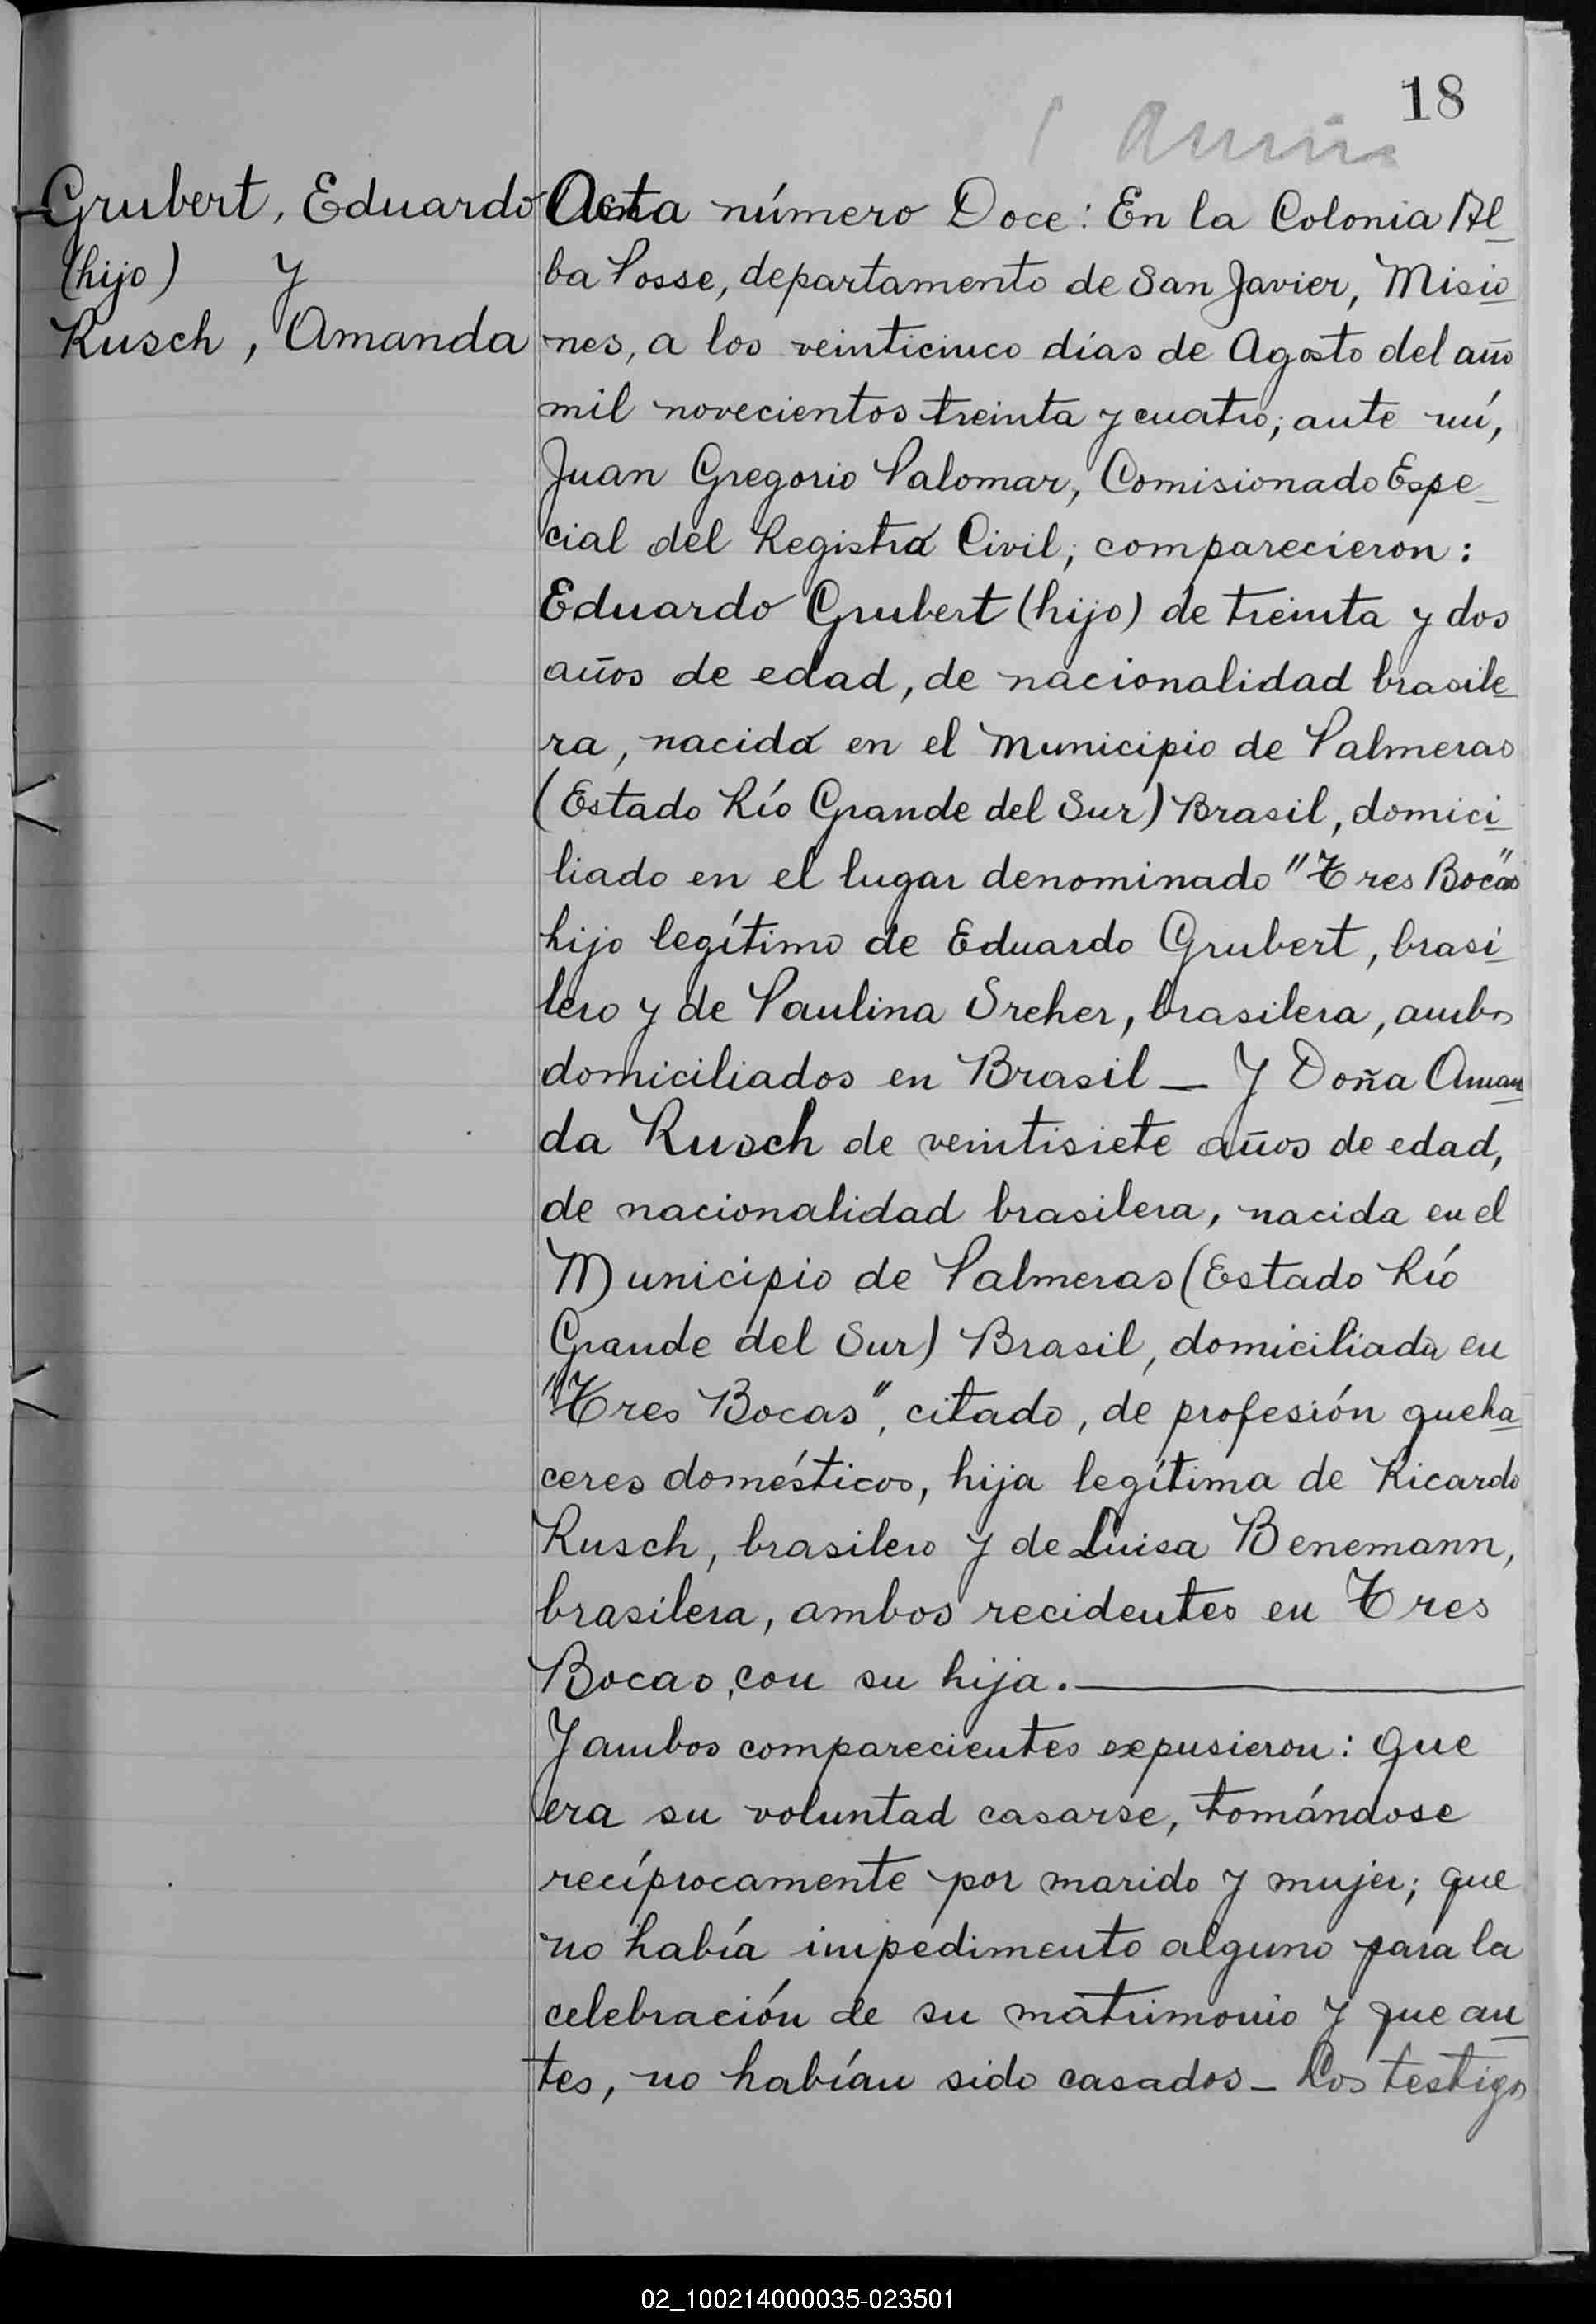 18
Grubert, Eduardo
(hijo) y
Rusch, Amanda
Acta número Doce: En la Colonia Al
ba Posse, departamento de San Javier, Misio
nes, a los veinticinco días de Agosto del año
mil novecientos treinta y cuatro; ante mí,
Juan Gregorio Palomar, Comisionado Espe
cial del Registro Civil, comparecieron:
Eduardo Grubert (hijo) de treinta y dos
años de edad, de nacionalidad brasile
ra, nacido en el Municipio de Palmeras
(Estado Río Grande del Sur) Brasil, domici
liado en el lugar denominado "Tres Bocas"
hijo legítimo de Eduardo Grubert, brasi
lero y de Paulina Sreher, brasilera, ambos
domiciliados en Brasil — Y Doña Aman
da Rusch de veintisiete años de edad,
de nacionalidad brasilera, nacida en el
Municipio de Palmeras (Estado Río
Grande del Sur) Brasil, domiciliada en
"Tres Bocas", citado, de profesión queha
ceres domésticos, hija legítima de Ricardo
Rusch, brasilero y de Luisa Benemann,
brasilera, ambos recidentes en Tres
Bocas, con su hija.
Y ambos comparecientes expusieron: Que
era su voluntad casarse, tomándose
recíprocamente por marido y mujer; que
no había impedimento alguno para la
celebración de su matrimonio y que an
tes, no habían sido casados — Los testigos
02_100214000035-023501